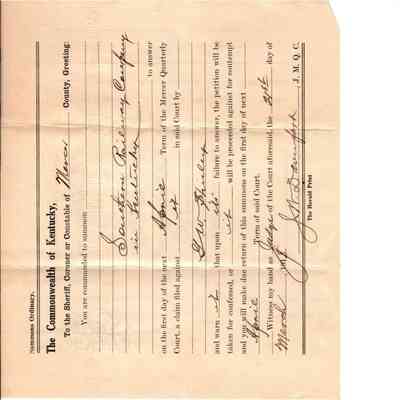 Summons Ordinary.
The Commonwealth of Kentucky,
To the Sheriff, Coroner or Constable of Mercer County, Greeting:
You are commanded to summon
Southern Railway Company
in Kentucky
to answer
on the first day of the next April Term of the Mercer Quarterly
Court, a claim filed against it in said Court by
G. W.
and warn it that upon its failure to answer, the petition will be
taken for confessed, or it will be proceeded against for contempt
and you will make due return of this summons on the first day of next
April Term of said Court.
Witness my hand as Judge of the Court aforesaid, the 21st day of
March
J. W. Davenport J. M. Q. C.
The Herald Print